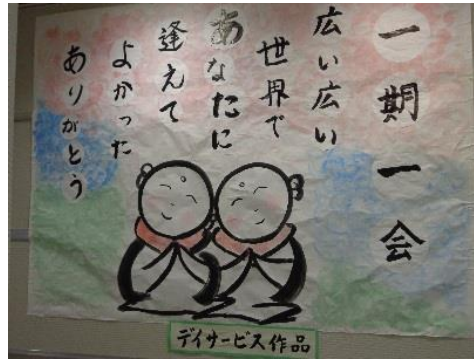 一期一会
広い広い
世界で
あなたに
逢えて
よかった
ありがとう
デイサービス作品